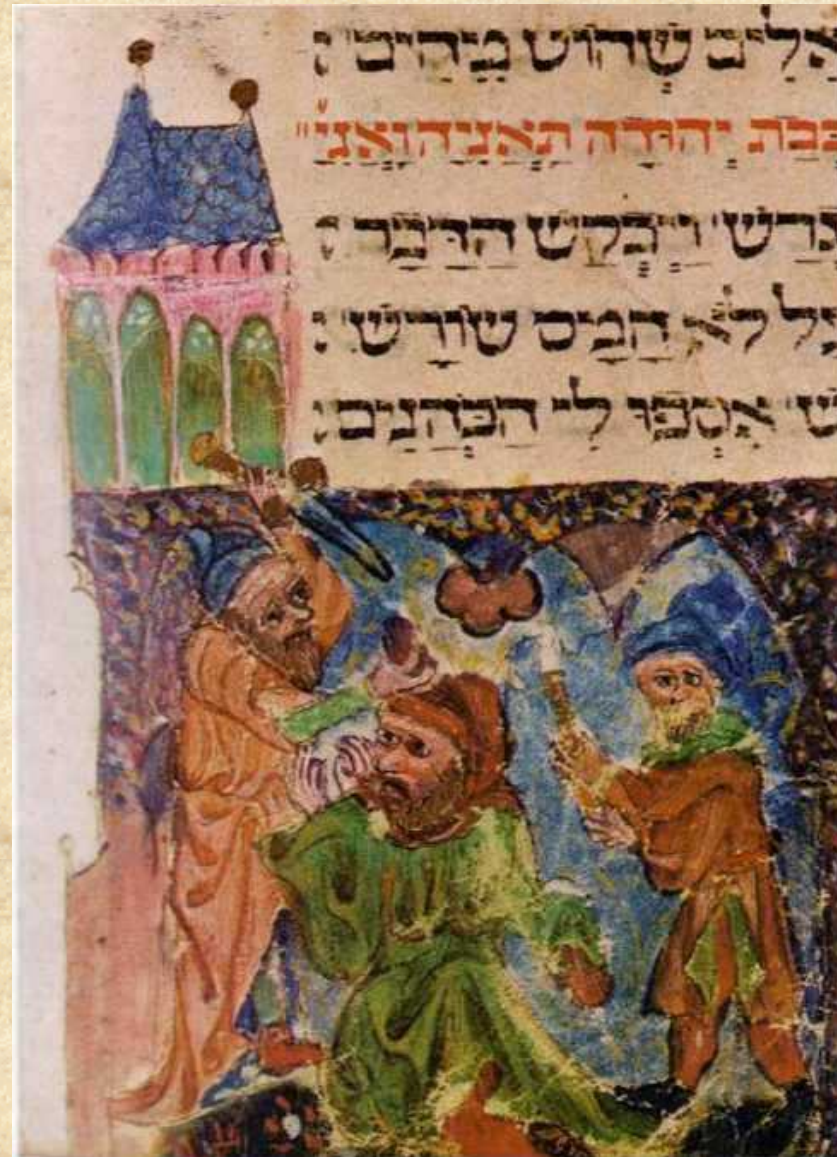 אֵלִים שְׁהוּט מֵהֵים׃
בְּבַת יְהוּדָה תַאֲנִיָה וַאֲנִי"
וַיְבֻקַּשׁ הַדָּבָר׃
לֹא הַמַס שׁוֹרֵשׁ׃
אִסְפוּ לִי הַכֹּהֲנִים׃